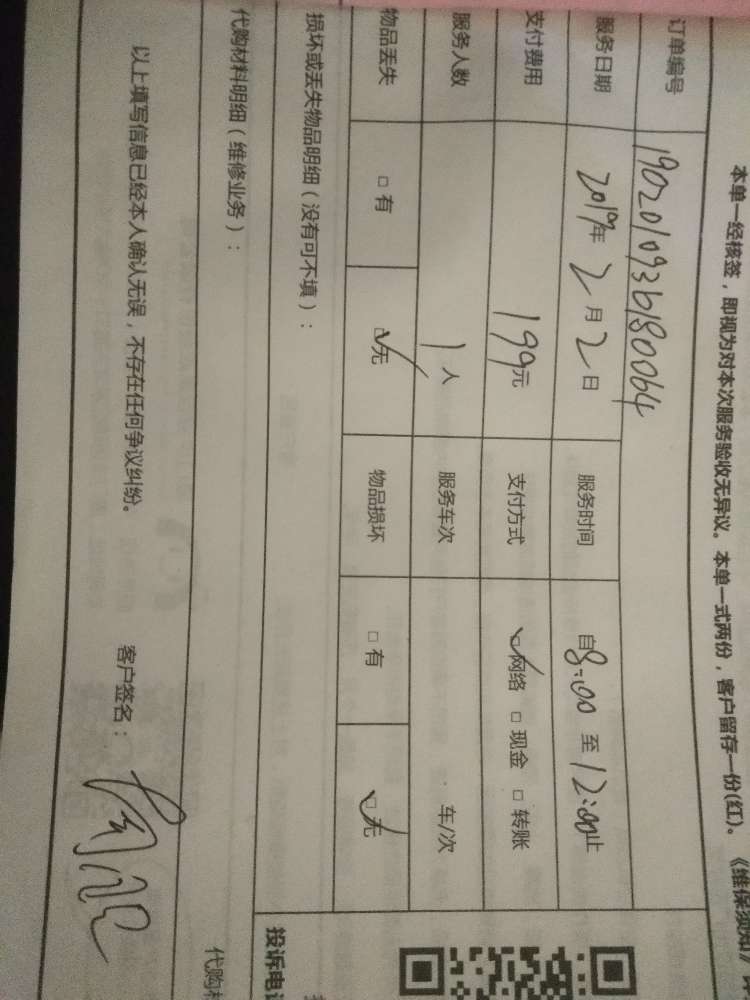 本单一经核签，即视为对本次服务验收无异议。本单一式两份，客户留存一份(红)。《维保须知》
订单编号 1902010936180064
服务日期 2019年 2月 2日 服务时间 自8:00 至 12:00止
支付费用 199元 支付方式 ☑网络 □现金 □转账
服务人数 1人 服务车次 车/次
物品丢失 □有 ☑无 物品损坏 □有 ☑无
损坏或丢失物品明细（没有可不填）：
代购材料明细（维修业务）：
以上填写信息已经本人确认无误，不存在任何争议纠纷。 客户签名：
投诉电
代购